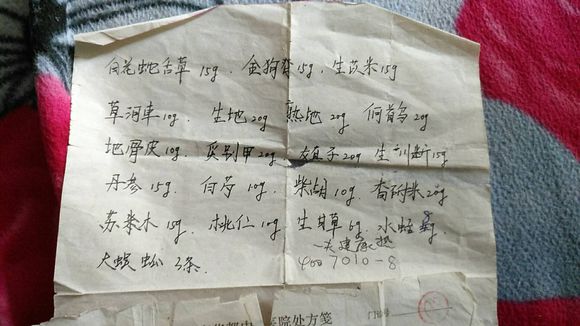 白花蛇舌草 15g. 金狗脊 15g. 生苡米 15g
草河車 10g. 生地 20g 熟地 20g 何首乌 20g
地骨皮 10g. 炙别甲 20g 女贞子 20g 生川断 15g
丹参 15g. 白芍 10g. 柴胡 10g. 香附米 20g
苏木 15g. 桃仁 10g. 生甘草 6g. 水蛭 8g
大蜈蚣 3条.
400 7010-8
医院处方笺